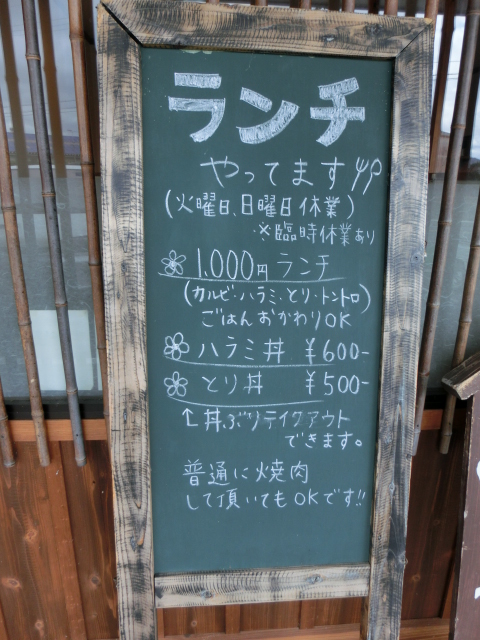 ランチ
やってます
(火曜日、日曜日休業)
※臨時休業あり
1,000円ランチ
(カルビ・ハラミ・とり・トントロ)
ごはんおかわりOK
ハラミ丼 ¥600-
とり丼 ¥500-
↑丼ぶりテイクアウト
できます。
普通に焼肉
して頂いてもOKです!!